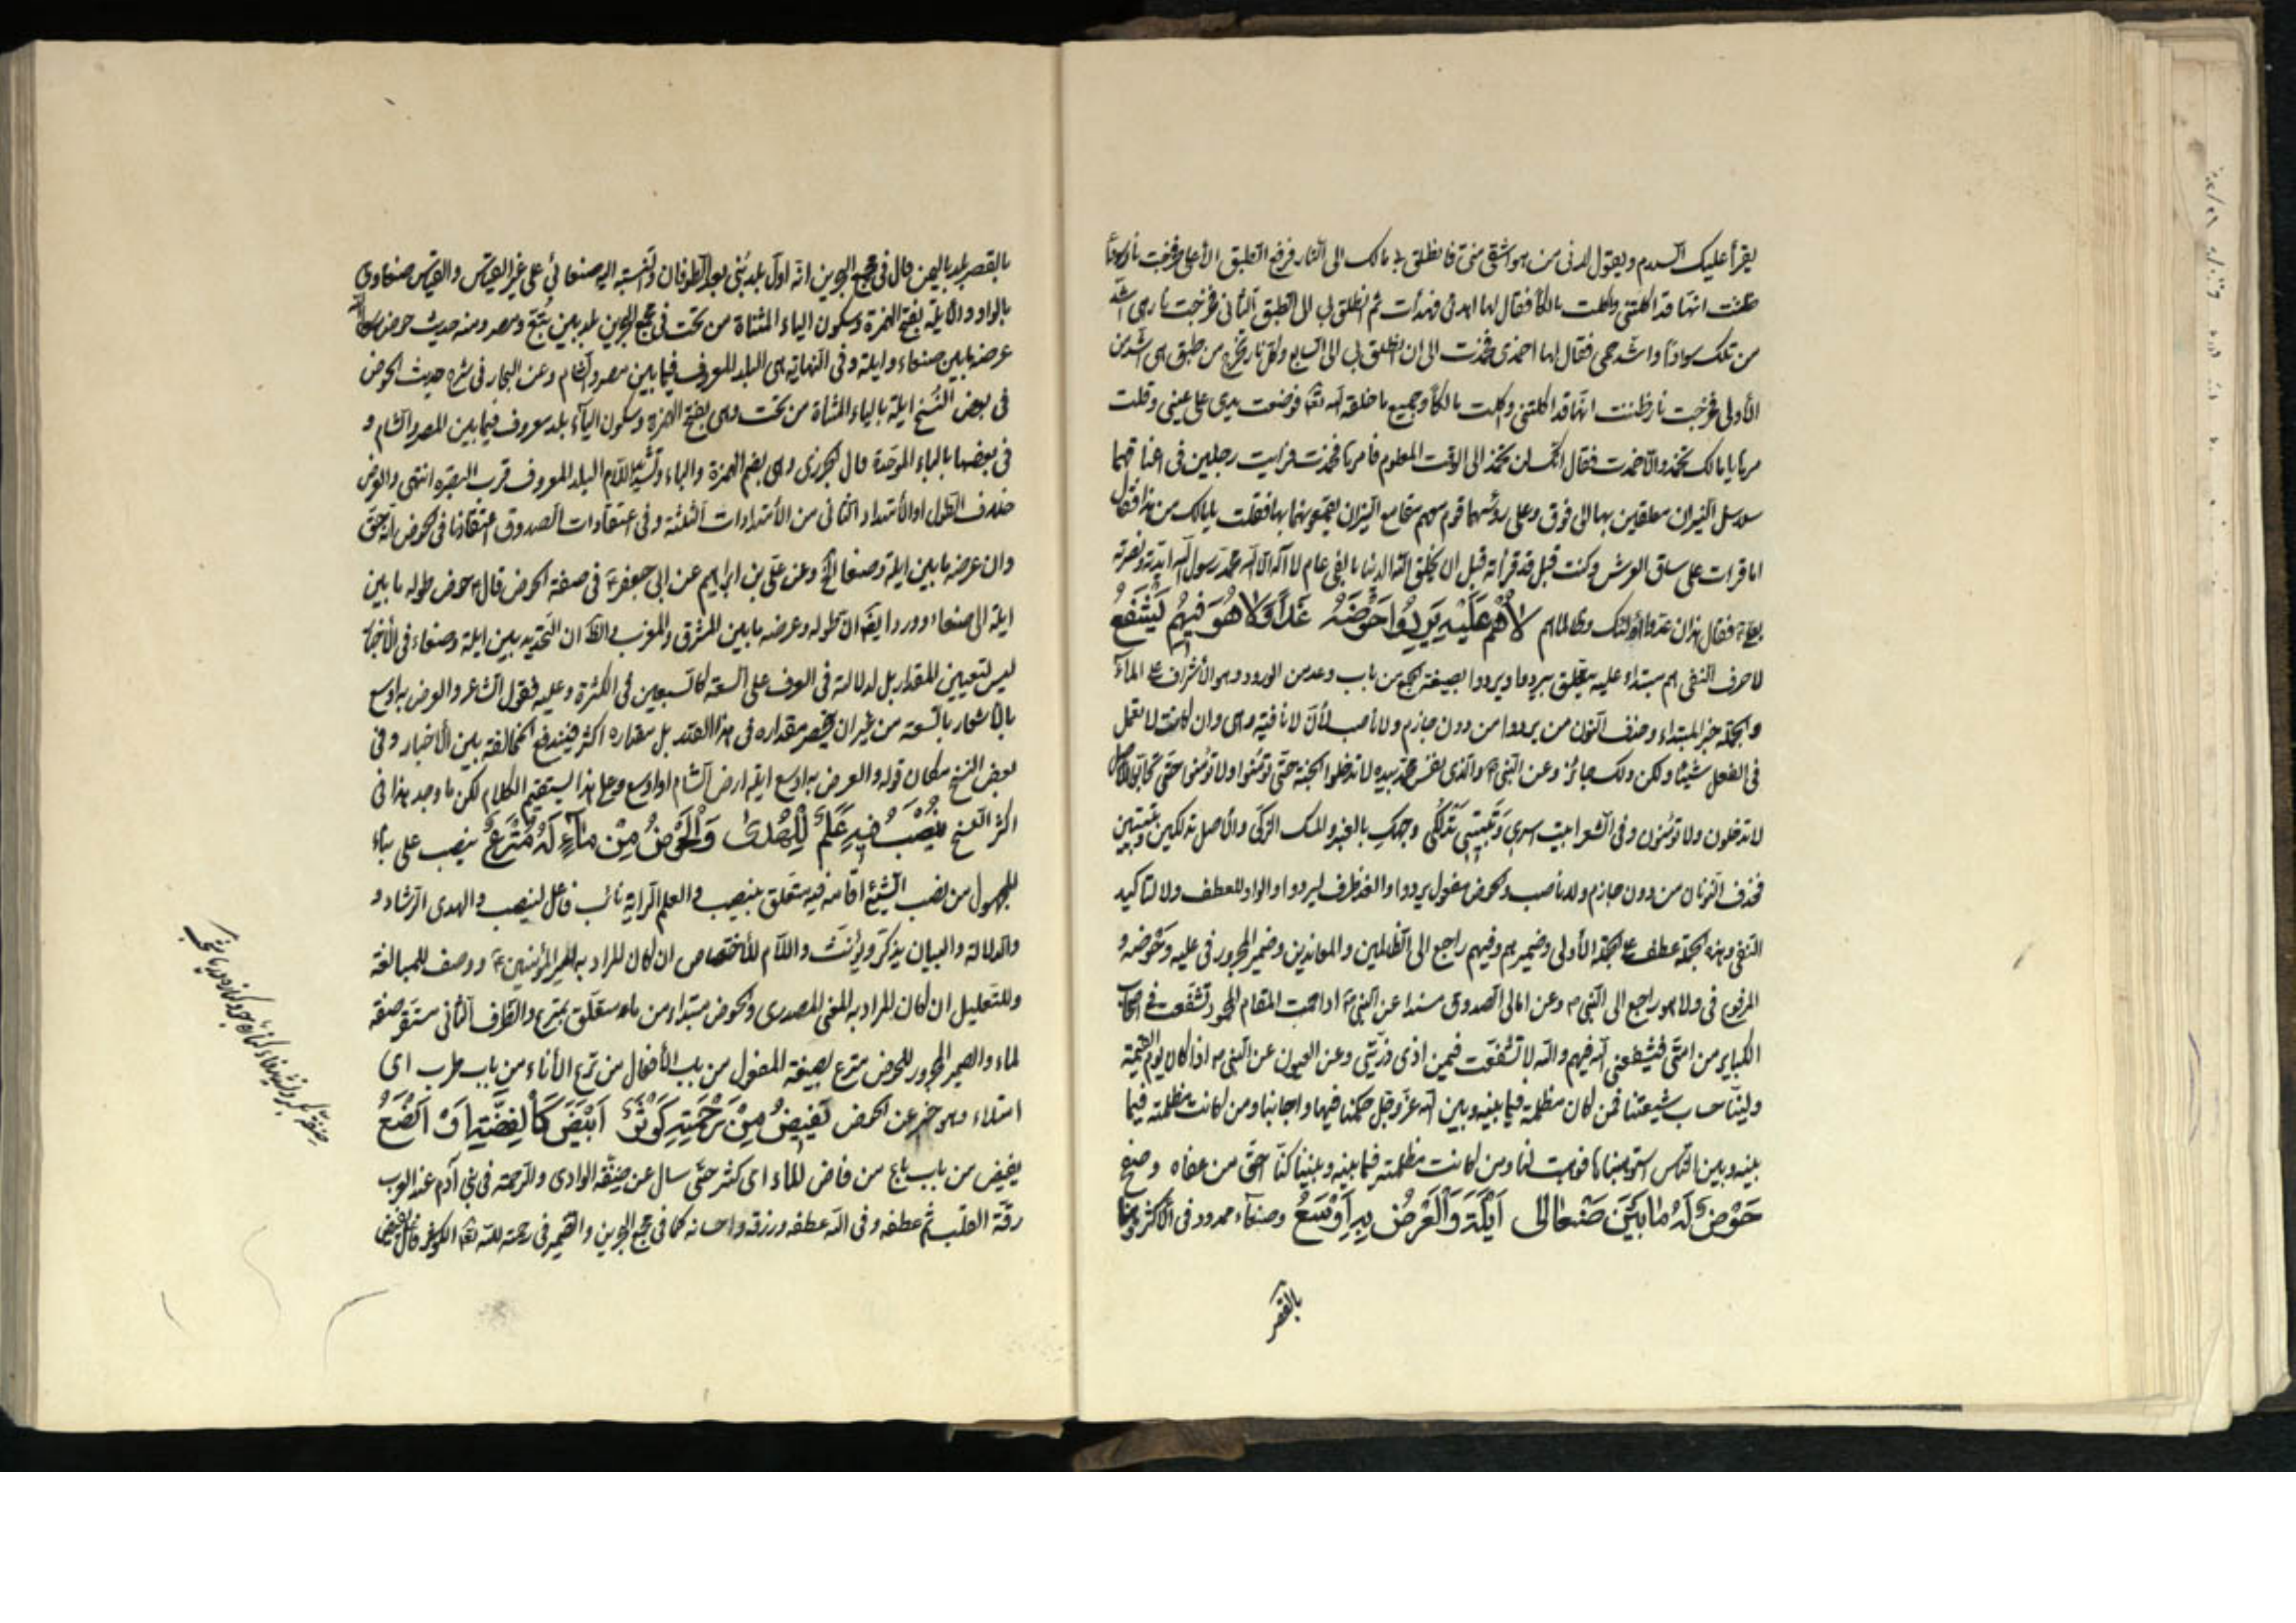 يقرأ عليك السلام ويقول لك ارنى من هو اشقى منى فانطلق بى مالك الى النار فرفع الطبق الأعلى فخرجت نار سوداء
ظننت انها قد اكلتنى واكلت مالكا فقال لها اهدئى فهدأت ثم انطلق بى الى الطبق الثانى فخرجت نار هى اشد
من تلك سوادا واشد حمى فقال لها اخمدى فخمدت الى ان انطلق بى الى السابع وكل نار تخرج من طبق هى اشد من
الأولى فخرجت نار ظننت انها قد اكلتنى واكلت مالكا وجميع ما خلقه الله تعا فوضعت يدى على عينى وقلت
مرها يا مالك تخمد والا خمدت فقال انك لن تخمد الى الوقت المعلوم فامرها فخمدت فرايت رجلين فى اعناقهما
سلاسل النيران معلقين بها الى فوق وعلى رؤسهما قوم معهم مقامع النيران يقمعونهما بها فقلت يا مالك من هذا فقال
اما قرات على ساق العرش وكنت قبل قد قرأته قبل ان يخلق الله الدنيا بالفى عام لا اله الا الله محمد رسول الله ايدته ونصرته
بعلى فقال هذان عدوا اولئك وظالماهم لَاهُمْ عَلَيْهِ يَرِدُوا حَوْضَهُ غَدًا وَلَا هُوَ فِيهُمْ يَشْفَعُ
لا حرف النفى هم مبتداء عليه يتعلق بيردوا ويردوا بصيغة الجمع من باب وعد من الورود وهو الأشراف على الماء
والجملة خبر المبتداء وحذف النون من يردوا من دون جازم ولا ناصب لأن لا نافية وهى وان كانت لا تعمل
فى الفعل شيئا ولكن ذلك جائز وعن النبى والذى نفس محمد بيده لا تدخلوا الجنة حتى تؤمنوا ولا تؤمنوا حتى تحابوا الاصل
لا تدخلون ولا تؤمنون وفى الشعر ابيت اسرى وتبيتى تدلكى وجهك بالعنبر والمسك الزكى والأصل تدلكين وتبيتين
فحذف النونان من دون جازم ولا ناصب والحوض مفعول يردوا والغد ظرف ليردوا والواو للعطف ولا لتاكيد
النفى وهذه الجملة عطف على الجملة الأولى وضمير هم وفيهم راجع الى الظالمين والمعاندين وضمير المجرور فى عليه وحوضه و
المرفوع فى ولا هو راجع الى النبى وعن امالى الصدوق مسندا عن النبى اذا قمت المقام المحمود تشفعت فى اصحاب
الكباير من امتى فيشفعنى الله فيهم والله لا تشفعت فيمن اذى ذريتى وعن العيون عن النبى اذا كان يوم القيمة
ولينا حساب شيعتنا فمن كان مظلمة فيما بينه وبين الله عز وجل حكمنا فيها واجابنا ومن كانت مظلمته فيما
بينه وبين الناس استوهبناها فوهبت لنا ومن كانت مظلمته فيما بينه وبيننا كنا احق من عفاه وصفح
حَوْضٌ لَهُ مَا بَيْنَ صَنْعَا اِلٰى اَيْلَةَ وَالْعَرْضُ بِهِ اَوْسَعُ وصنعاء ممدود فى الأكثر وهنا
بالقصر
بالقصر بلد باليمن قال فى مجمع البحرين انه اول بلد بنى بعد الطوفان والنسبة اليه صنعائى على غير القياس والقياس صنعاوى
بالواو والايلة بفتح الهمزة وسكون الياء المثناة من تحت فى مجمع البحرين بلد بين ينبع ومصر ومنه حديث حوض رسول الله
عرضه ما بين صنعاء وايلة وفى النهاية هى البلد المعروف فيما بين مصر والشام وعن البحار فى شرح حديث الحوض
فى بعض النسخ ايلة بالياء المثناة من تحت وهى بفتح الهمزة وسكون الياء بلد معروف فيما بين المصر والشام و
فى بعضها بالباء الموحدة قال الجزرى وهى بضم الهمزة والباء وتشديد اللام البلد المعروف قرب البصرة انتهى والعرض
خلاف الطول او الأمتداد الثانى من الأمتدادات الثلثة وفى اعتقادات الصدوق اعتقادنا فى الحوض انه حق
وان عرضه ما بين ايلة وصنعا الخ وعن على بن ابراهيم عن ابى جعفر فى صفة الحوض قال حوض طوله ما بين
ايلة الى صنعاء وورد ايضا ان طوله وعرضه ما بين المشرق والمغرب والظ ان التحديد بين ايلة وصنعاء فى الأخبار
ليس لتعيين المقدار بل لدلالته فى العرف على السعة كالسبعين فى الكثرة وعليه فقول الشاعر والعرض به اوسع
بالأشعار بالسعة من غير ان ينحصر مقداره فى هذا القدر بل مقداره اكثر فيندفع المخالفة بين الأخبار وفى
بعض النسخ مكان قوله والعرض به اوسع ايلة ارض الشام او اوسع وعلى هذا يستقيم الكلام لكن ما وجد هذا فى
اكثر النسخ يُنْصَبُ فِيهِ عَلَمٌ لِلْهُدٰى وَالْحَوْضُ مِنْ مَاءٍ لَهُ مُتْرَعٌ ينصب على بناء
للمجهول من نصب الشيئ اقامه فيه متعلق بينصب والعلم الراية نائب فاعل لينصب والهدى الرشاد و
والدلالة والبيان يذكر ويؤنث واللام للأختصاص ان كان المراد به امير المؤمنين ووصف للمبالغة
وللتعليل ان كان المراد به المعنى المصدرى والحوض مبتداء من ماء متعلق بمترع والظرف الثانى مستقر صفة
لماء والضمير المجرور للحوض مترع بصيغة المفعول من باب الأفعال من ترع الأناء من باب طرب اى
امتلاء وهو خبر عن الحوض يَفِيضُ مِنْ رَحْمَتِهِ كَوْثَرٌ اَبْيَضُ كَالْفِضَّةِ اَوْ اَنْصَعُ
يفيض من باب باع من فاض الماء اى كثر حتى سال عن ضفة الوادى والرحمة فى بنى آدم عند العرب
رقة القلب ثم عطفه وفى الله عطفه ورزقه واحسانه كما فى مجمع البحرين والضمير فى رحمته لله تعا الكوثر فاعل يفيض